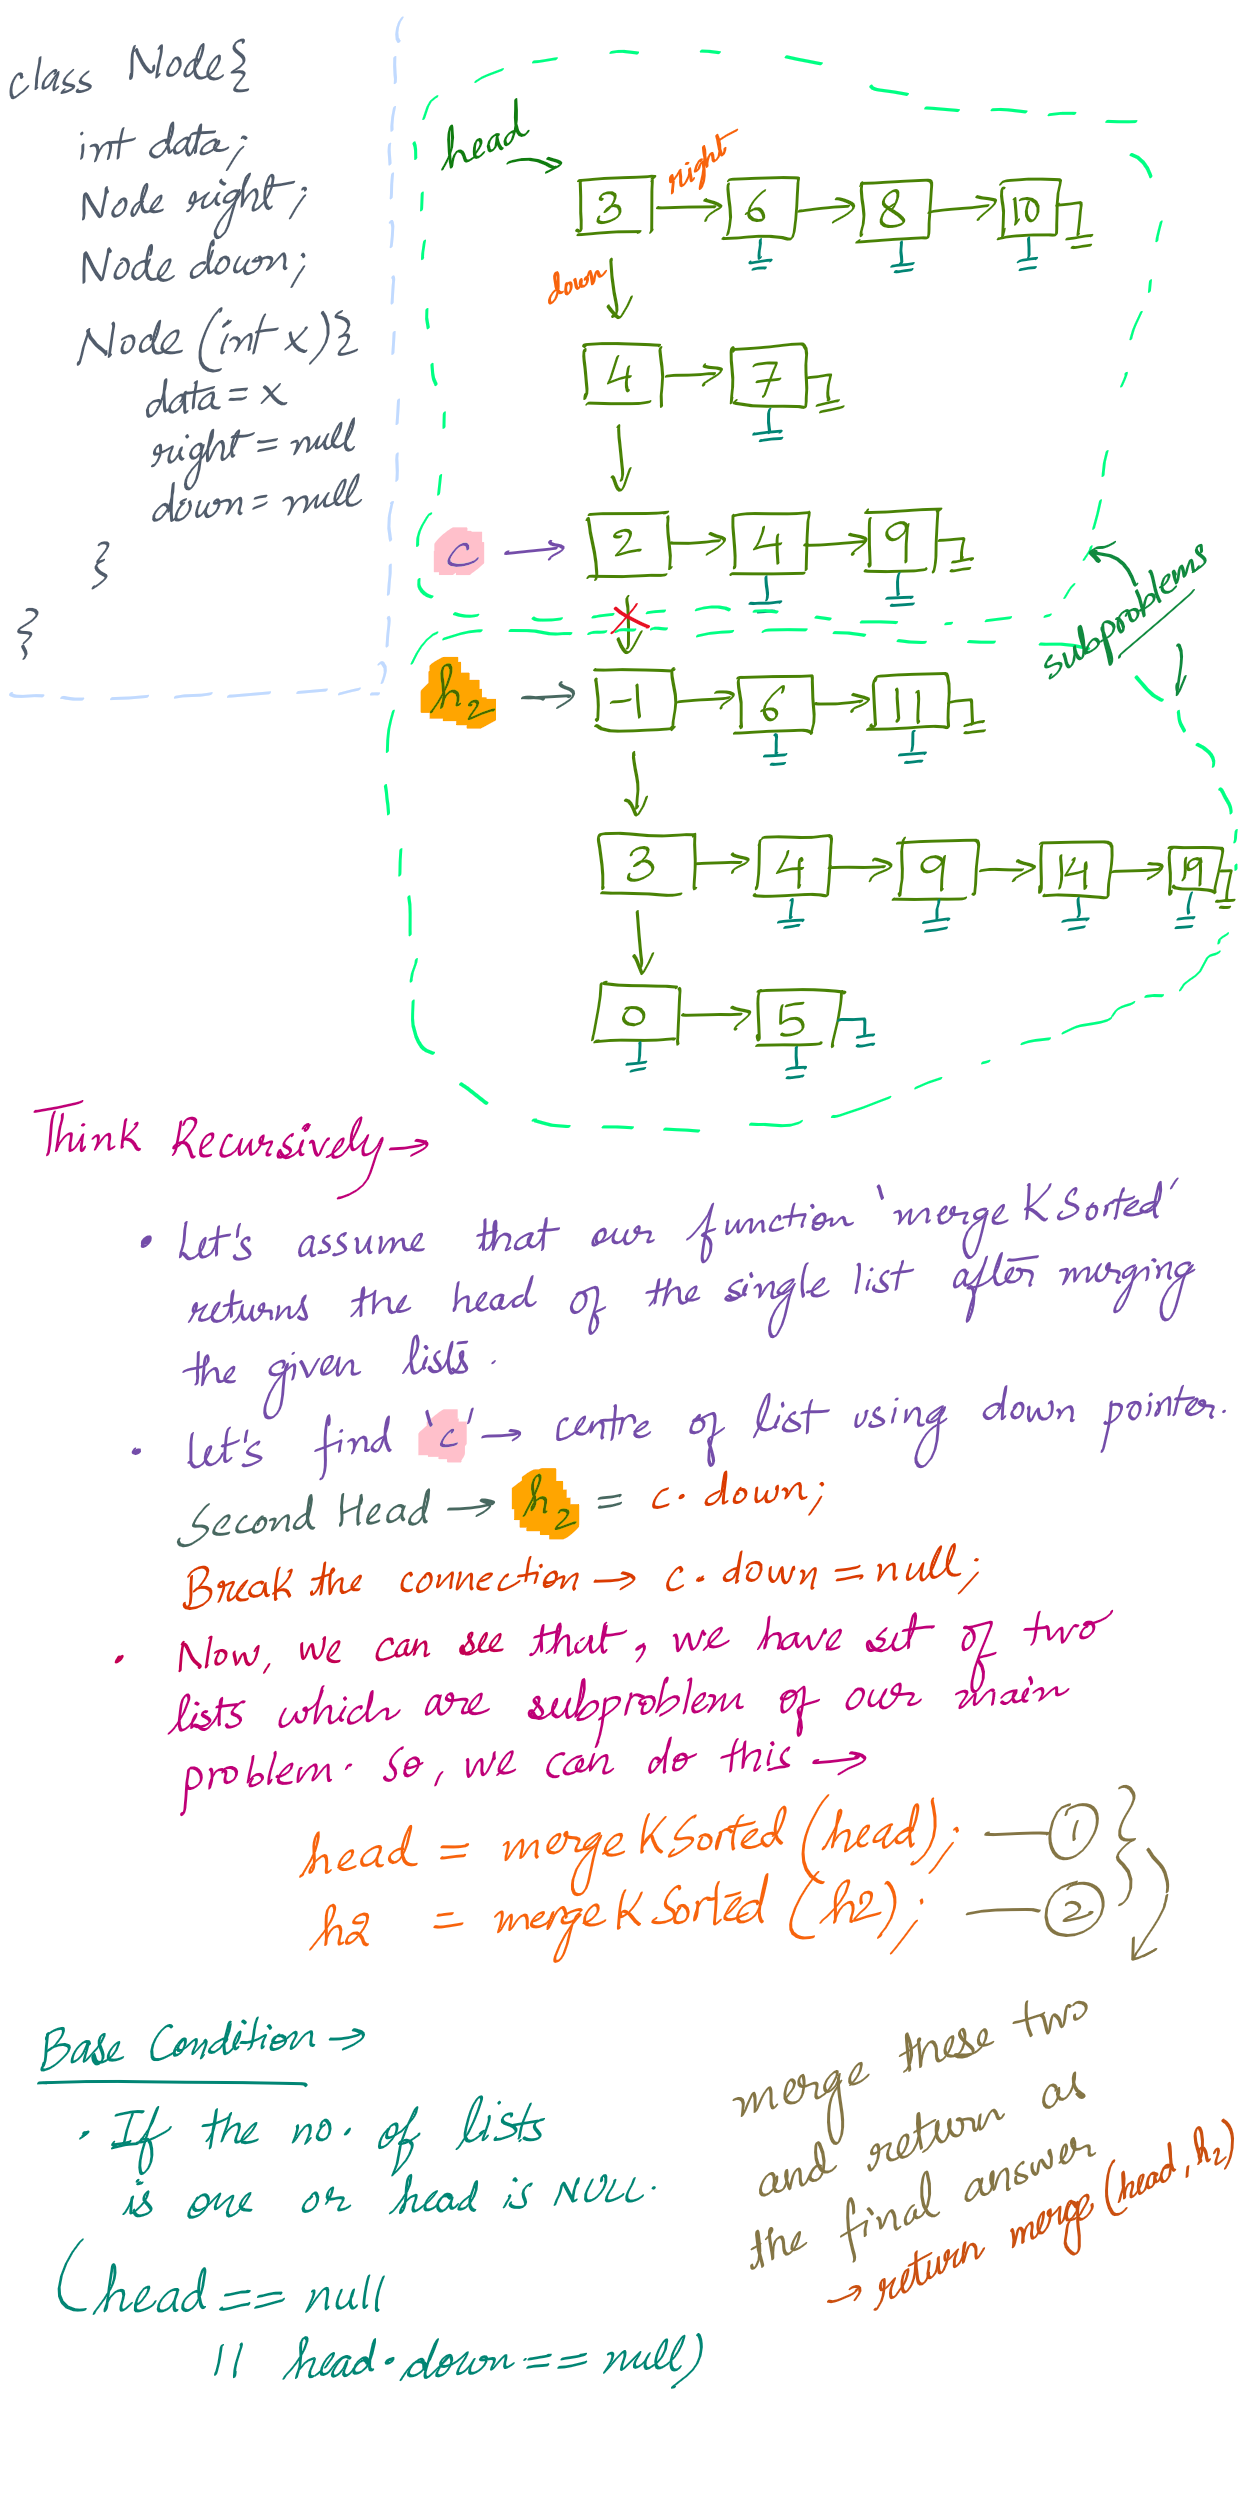 class Node{
int data;
Node right;
Node down;
Node (int x){
data = x
right = null
down = null
}
}
head
right
3 6 8 10
down
4 7
c → 2 4 9
subproblems
h2 → -1 6 11
3 4 9 14 19
0 5
Think Recursively →
• Let's assume that our function 'mergeKSorted'
returns the head of the single list after merging
the given lists.
• Let's find 'c' → centre of list using down pointer.
Second Head → h2 = c.down;
Break the connection → c.down = null;
• Now, we can see that, we have set of two
lists which are subproblem of our main
problem. So, we can do this →
head = mergeKSorted (head); — 1
h2 = mergeKSorted (h2); — 2
merge these two
and return as
the final answer
→ return merge (head, h2)
Base Condition →
• If the no. of lists
is one or head is NULL.
(head == null
|| head.down == null)